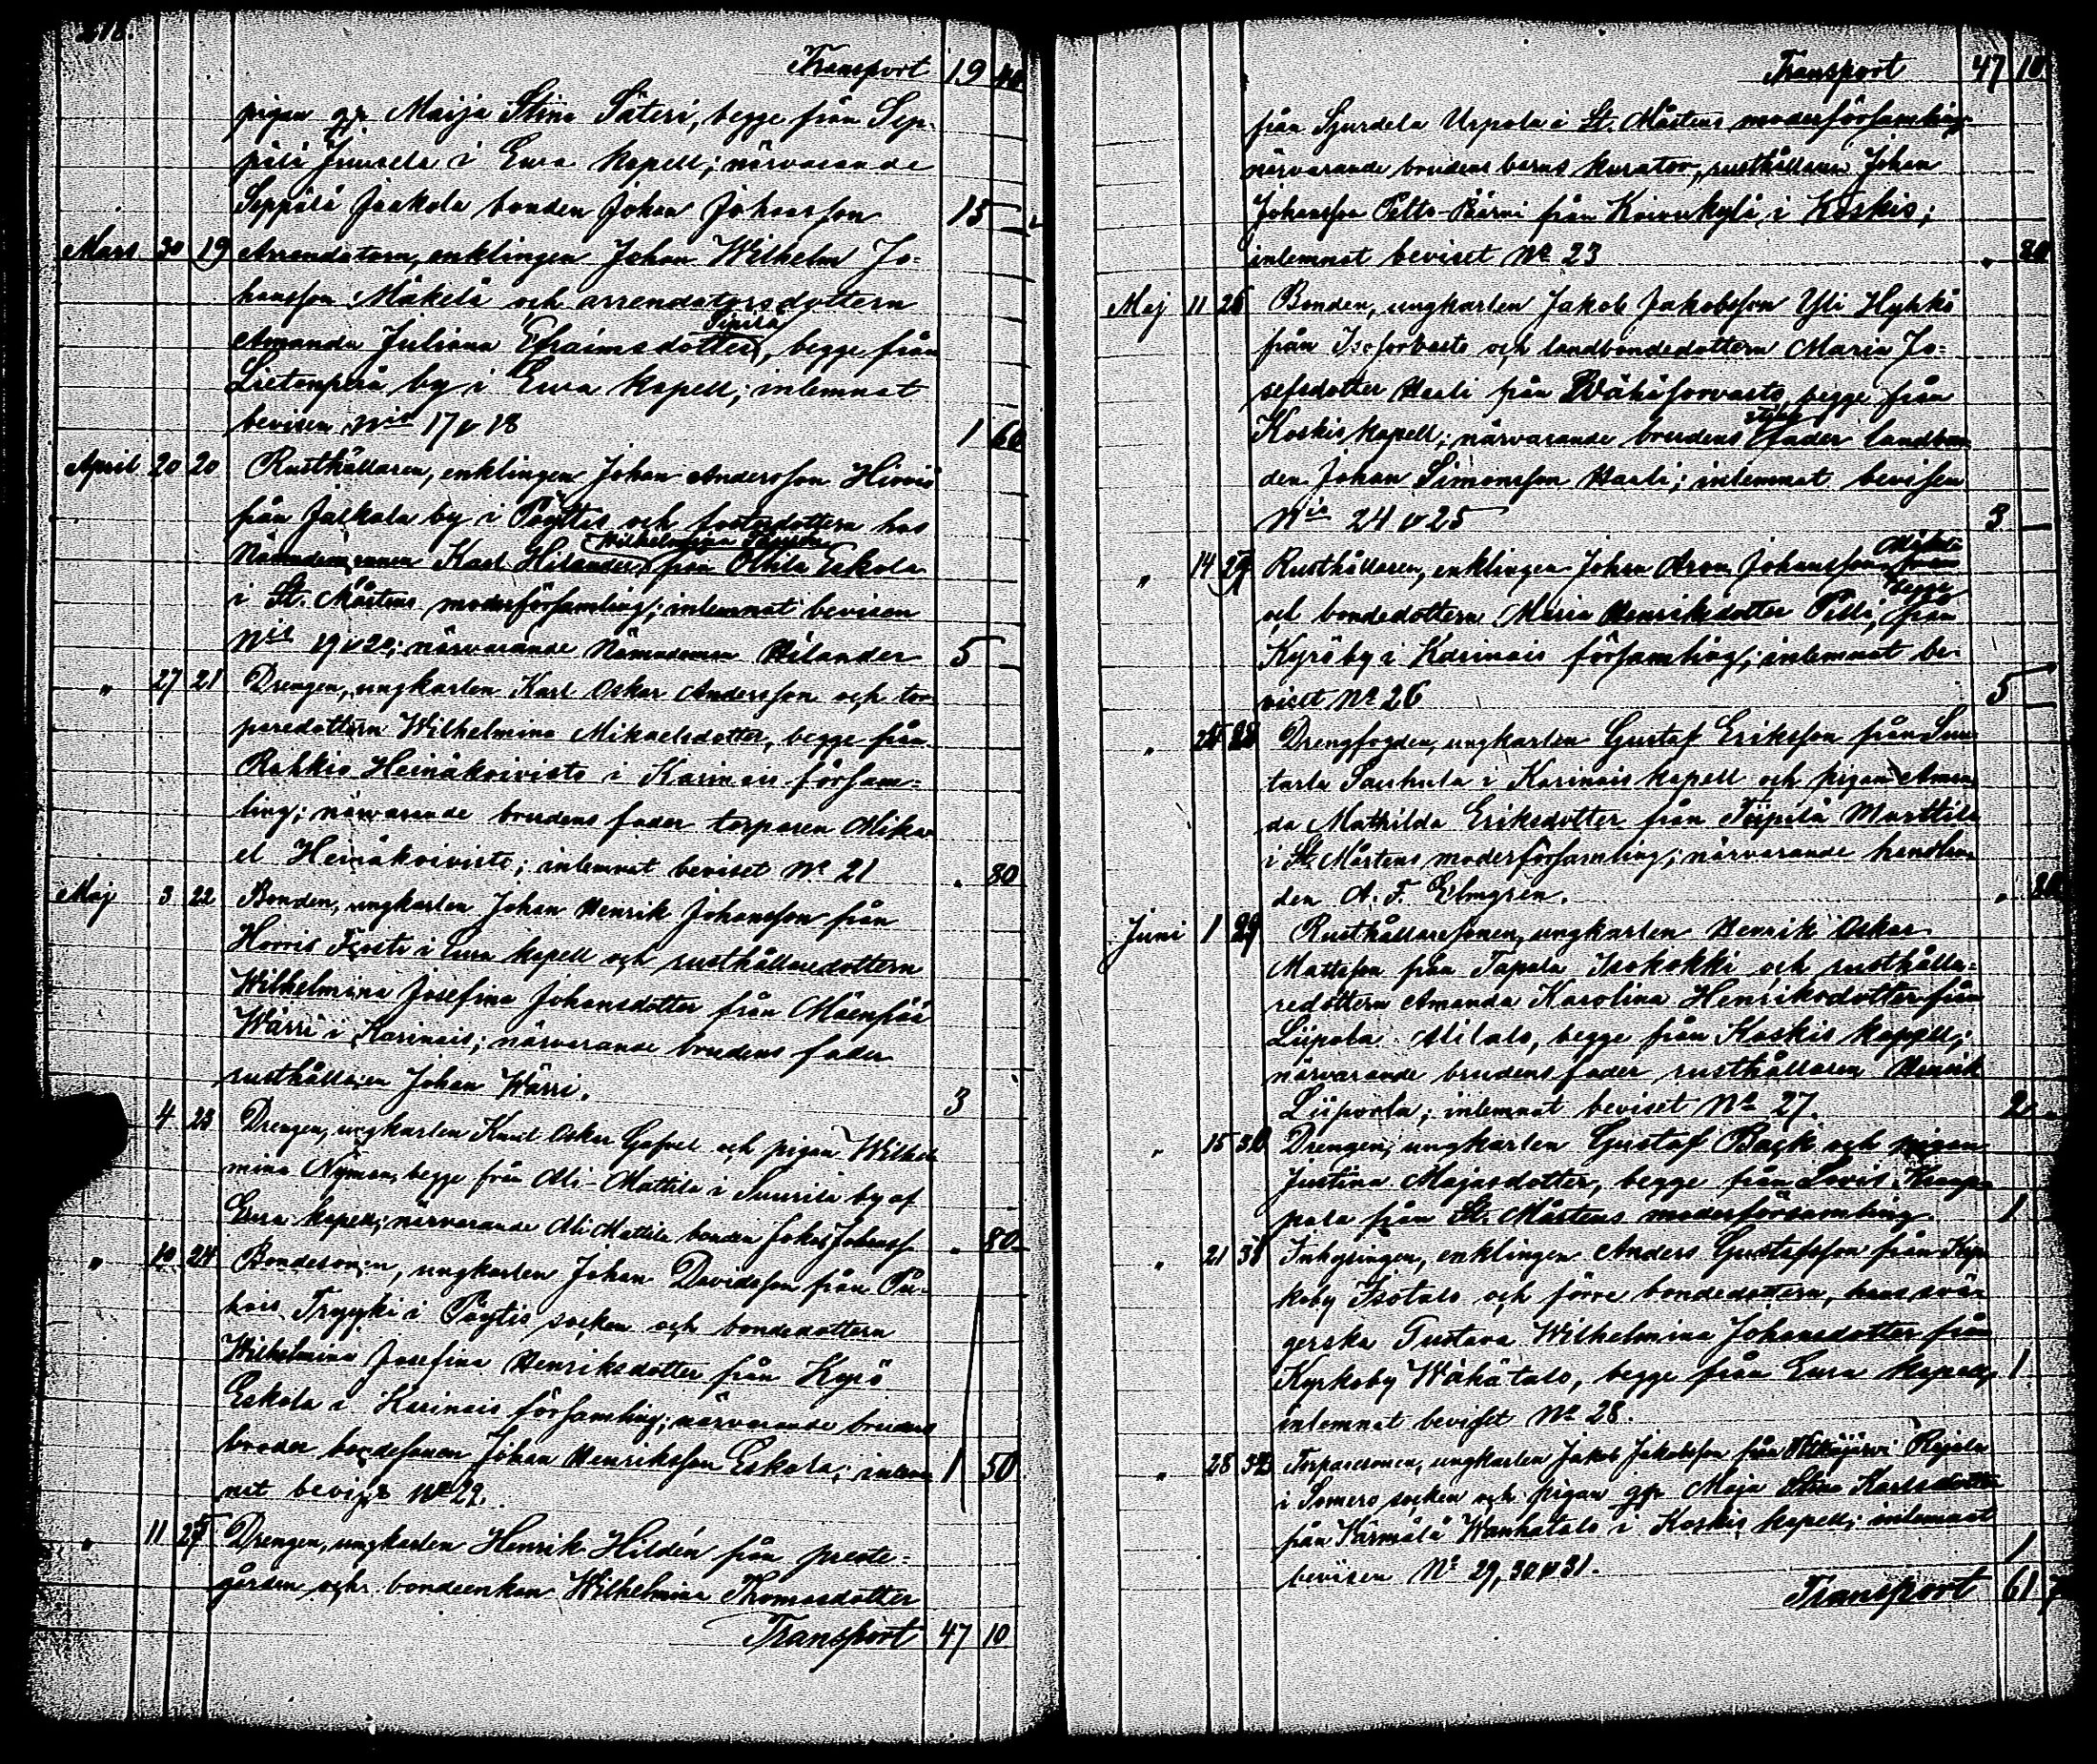 Transport 19 40
pigan gr Maija Stina Säteri, begge från Sep-
pälä Juusela i Eura kapell; närvarande
Seppälä Jaakola bonden Johan Johansson 15 —
Mars 30 19 Arrendatorn, enklingen Johan Wilhelm Jo-
hansson Mäkelä och arrendatorsdottern
Sipilä
Amanda Juliana Efraimsdotter, begge från
Lietonperä by i Eura kapell; inlemnat
bevisen Nis 17 & 18 1 60
April 20 20 Rusthållaren, enklingen Johan Andersson Hirvis
från Jalkala by i Pöyttis och fosterdottern hos
Wilhelmina
Nämndemannen Karl Helander från Ollila Eskola
i St. Mårtens moderförsamling; inlemnat bevisen
Nis 19 & 20; närvarande Nämndeman Hilander 5 —
" 27 21 Drengen, ungkarlen Karl Oskar Andersson och tor-
paredottern Wilhelmina Mikaelsdotter, begge från
Rahkio Heinäkoivisto i Karinais försam-
ling; närvarande brudens fader torparen Mika-
el Heinäkoivisto; inlemnat beviset No 21 " 80
Maj 3 22 Bonden, ungkarlen Johan Henrik Johansson från
Horris Frosti i Eura kapell och rusthållaredottern
Wilhelmina Josefina Johansdotter från Mäenpää
Wärri i Karinais; närvarande brudens fader
rusthållaren Johan Wärri. 3
4 23 Drengen, ungkarlen Knut Oskar och pigan Wilhel-
mina Nyman, begge från Ali-Mattila i Suurila by af
Eura kapell; närvarande Ali Mattila bonden Johan Johanss. " 80
" 10 24 Bondesonen, ungkarlen Johan Davidsson från Pu-
hois Tryyki i Pöytis socken och bondedottern
Wilhelmina Josefina Henriksdotter från Kyrö
Eskola i Karinais församling; närvarande brudens
broder bondesonen Johan Henriksson Eskola; inlem- 1 50
nat bevis No 22.
" 11 25 Drengen, ungkarlen Henrik Hildén från preste-
gården och bondeenkan Wilhelmina Thomasdotter
Transport 47 10
Transport 47 10
från Sjurdela Uspola i St. Mårtens moderförsamling
närvarande brudens barns kurator, rusthållaren Johan
Johansson Pelto-Pärni från Koivukylä i Koskis;
inlemnat beviset No 23 " 80
Maj 11 26 Bonden, ungkarlen Jakob Jakobsson Yli Hyhkö
från Isosorvasto och landbondedottern Maria Jo-
sefsdotter Haali från Wähäsorvasto, begge från
Koskis kapell; närvarande brudens fader landbon-
den Johan Simonsson Haali; inlemnat bevisen
Nis 24 & 25 3 —
" 14 27 Rusthållaren, enklingen Johan Aron Johansson
begge
och bondedottern Maria Henriksdotter Pilli, från
Kyrö by i Karinais församling; inlemnat be-
viset No 26 5 —
" 25 28 Drengfogden, ungkarlen Gustaf Eriksson från Suu-
tarla Sauhula i Karinais kapell och pigan Aman-
da Mathilda Eriksdotter från Tiipilä Marttila
i St. Mårtens moderförsamling; närvarande handlan-
den A. F. Elmgren. " 80
Juni 1 29 Rusthållaresonen, ungkarlen Henrik Oskar
Mattsson från Tapala Isokokki och rusthålla-
redottern Amanda Karolina Henriksdotter från
Liipola Alitalo, begge från Koskis kapell;
närvarande brudens fader rusthållaren Henrik
Liipola; inlemnat beviset No 27. 2 —
" 15 30 Drengen, ungkarlen Gustaf Back och pigan
Justina Majasdotter, begge från Krap-
pala från St. Mårtens moderförsamling. 1
" 21 31 Inhysingen, enklingen Anders Gustafsson från Kyr-
koby Isotalo och förre bondedottern, hans svä-
gerska Gustava Wilhelmina Johansdotter från
Kyrkoby Wähätalo, begge från Eura kapell, 1
inlemnat beviset No 28.
" 28 32 Torparesonen, ungkarlen Jakob Jakobsson från Rajala
i Somero socken och pigan gr Maja Stina Karlsdotter
från Kärmälä Wanhatalo i Koskis kapell; inlemnat
bevisen No 29, 30 & 31. 1
Transport 61 7